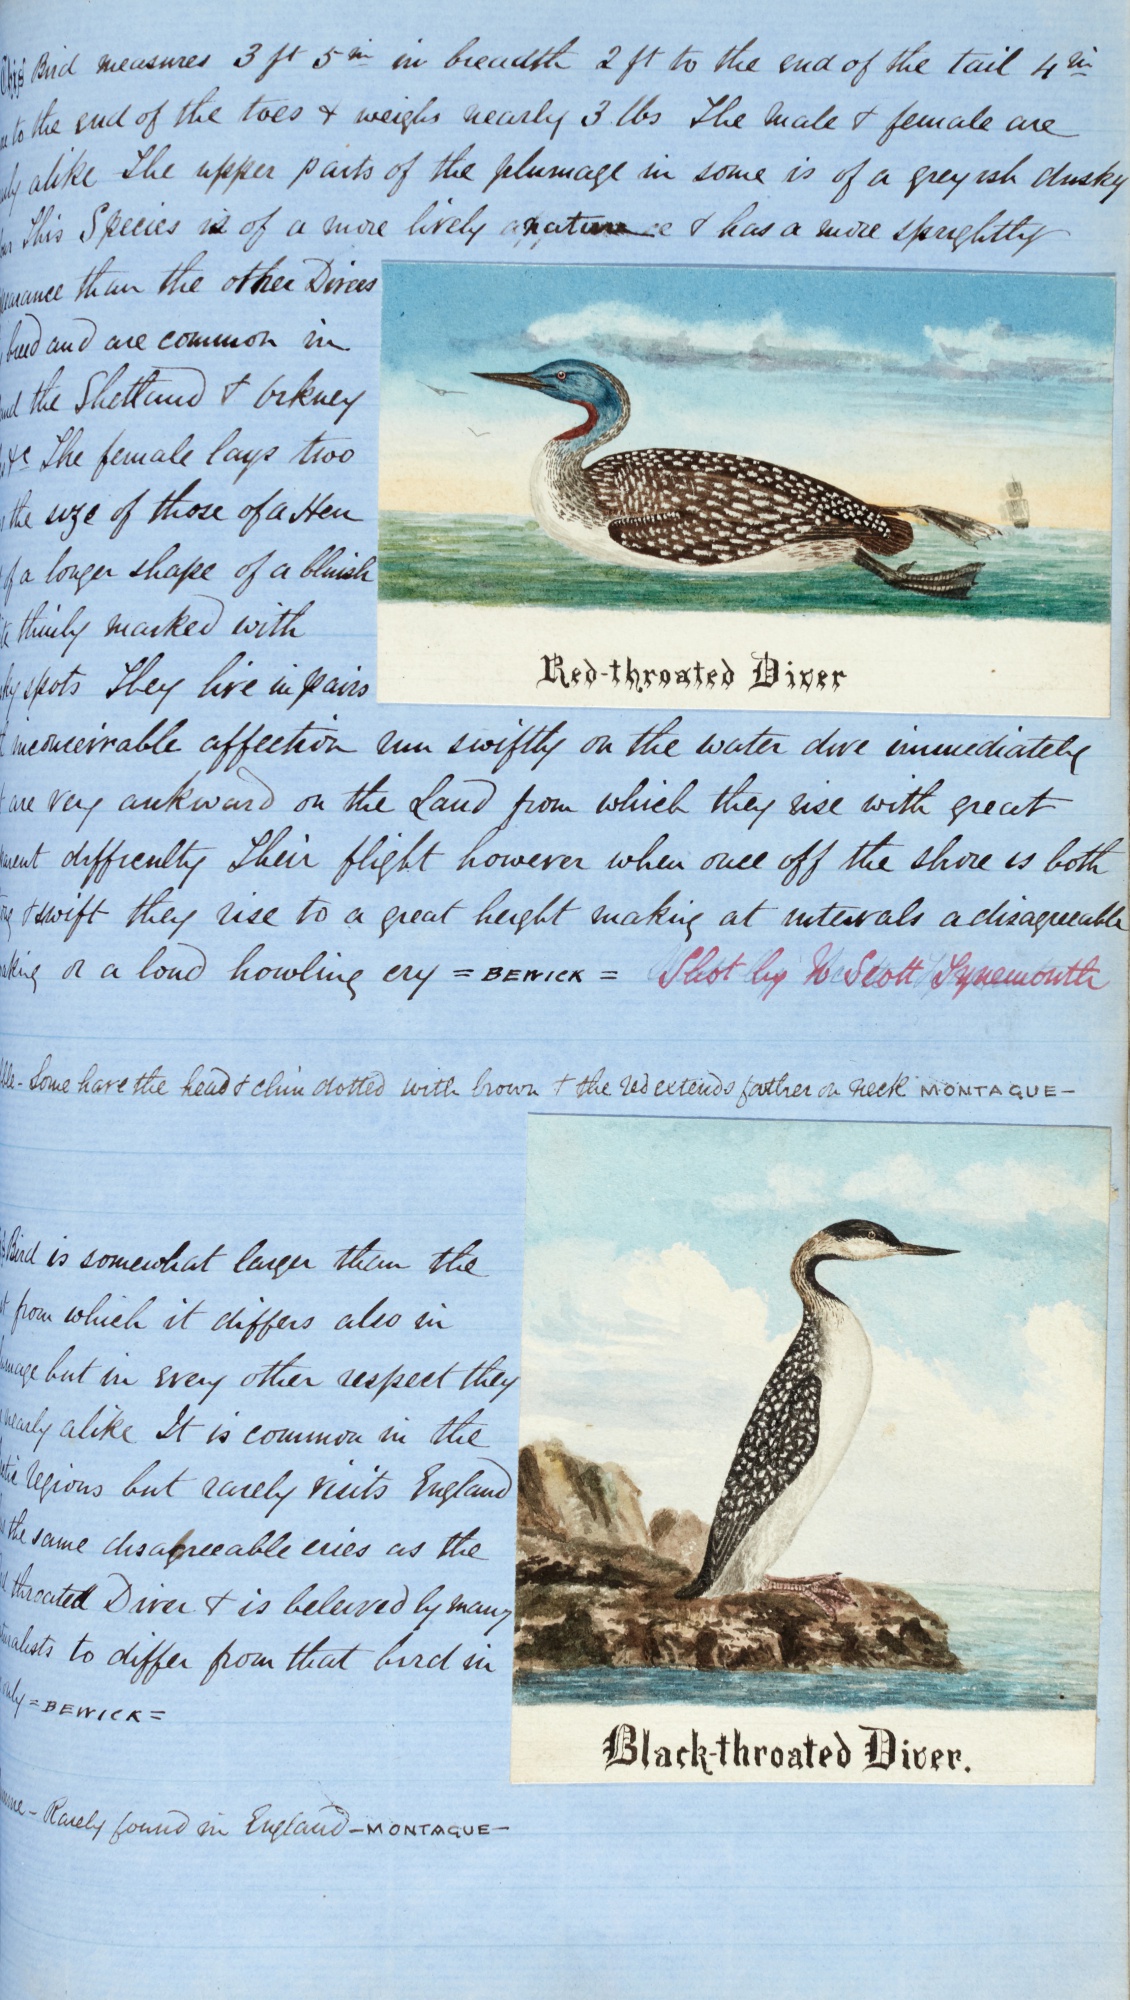 This Bird measures 3 ft 5 in in breadth 2 ft to the end of the tail 4 in
to the end of the toes & weighs nearly 3 lbs The male & female are
alike The upper parts of the plumage in some is of a greyish dusky
This Species is of a more lively nature & has a more sprightly
than the other Divers
breed and are common in
the Shetland & Orkney
&c The female lays two
the size of those of a Hen
of a longer shape of a bluish
thinly marked with
spots They live in pairs
inconceivable affection run swiftly on the water dive immediately
are very aukward on the Land from which they rise with great
difficulty Their flight however when once off the shore is both
& swift they rise to a great height making at intervals a disagreeable
or a loud howling cry = BEWICK = Shot by W Scott Tynemouth
Red-throated Diver
Some have the head & chin dotted with brown & the red extends farther on neck MONTAGUE -
Bird is somewhat larger than the
from which it differs also in
but in every other respect they
nearly alike It is common in the
regions but rarely visits England
the same disagreeable cries as the
throated Diver & is beleived by many
to differ from that bird in
= BEWICK =
Black-throated Diver.
- Rarely found in England - MONTAGUE -